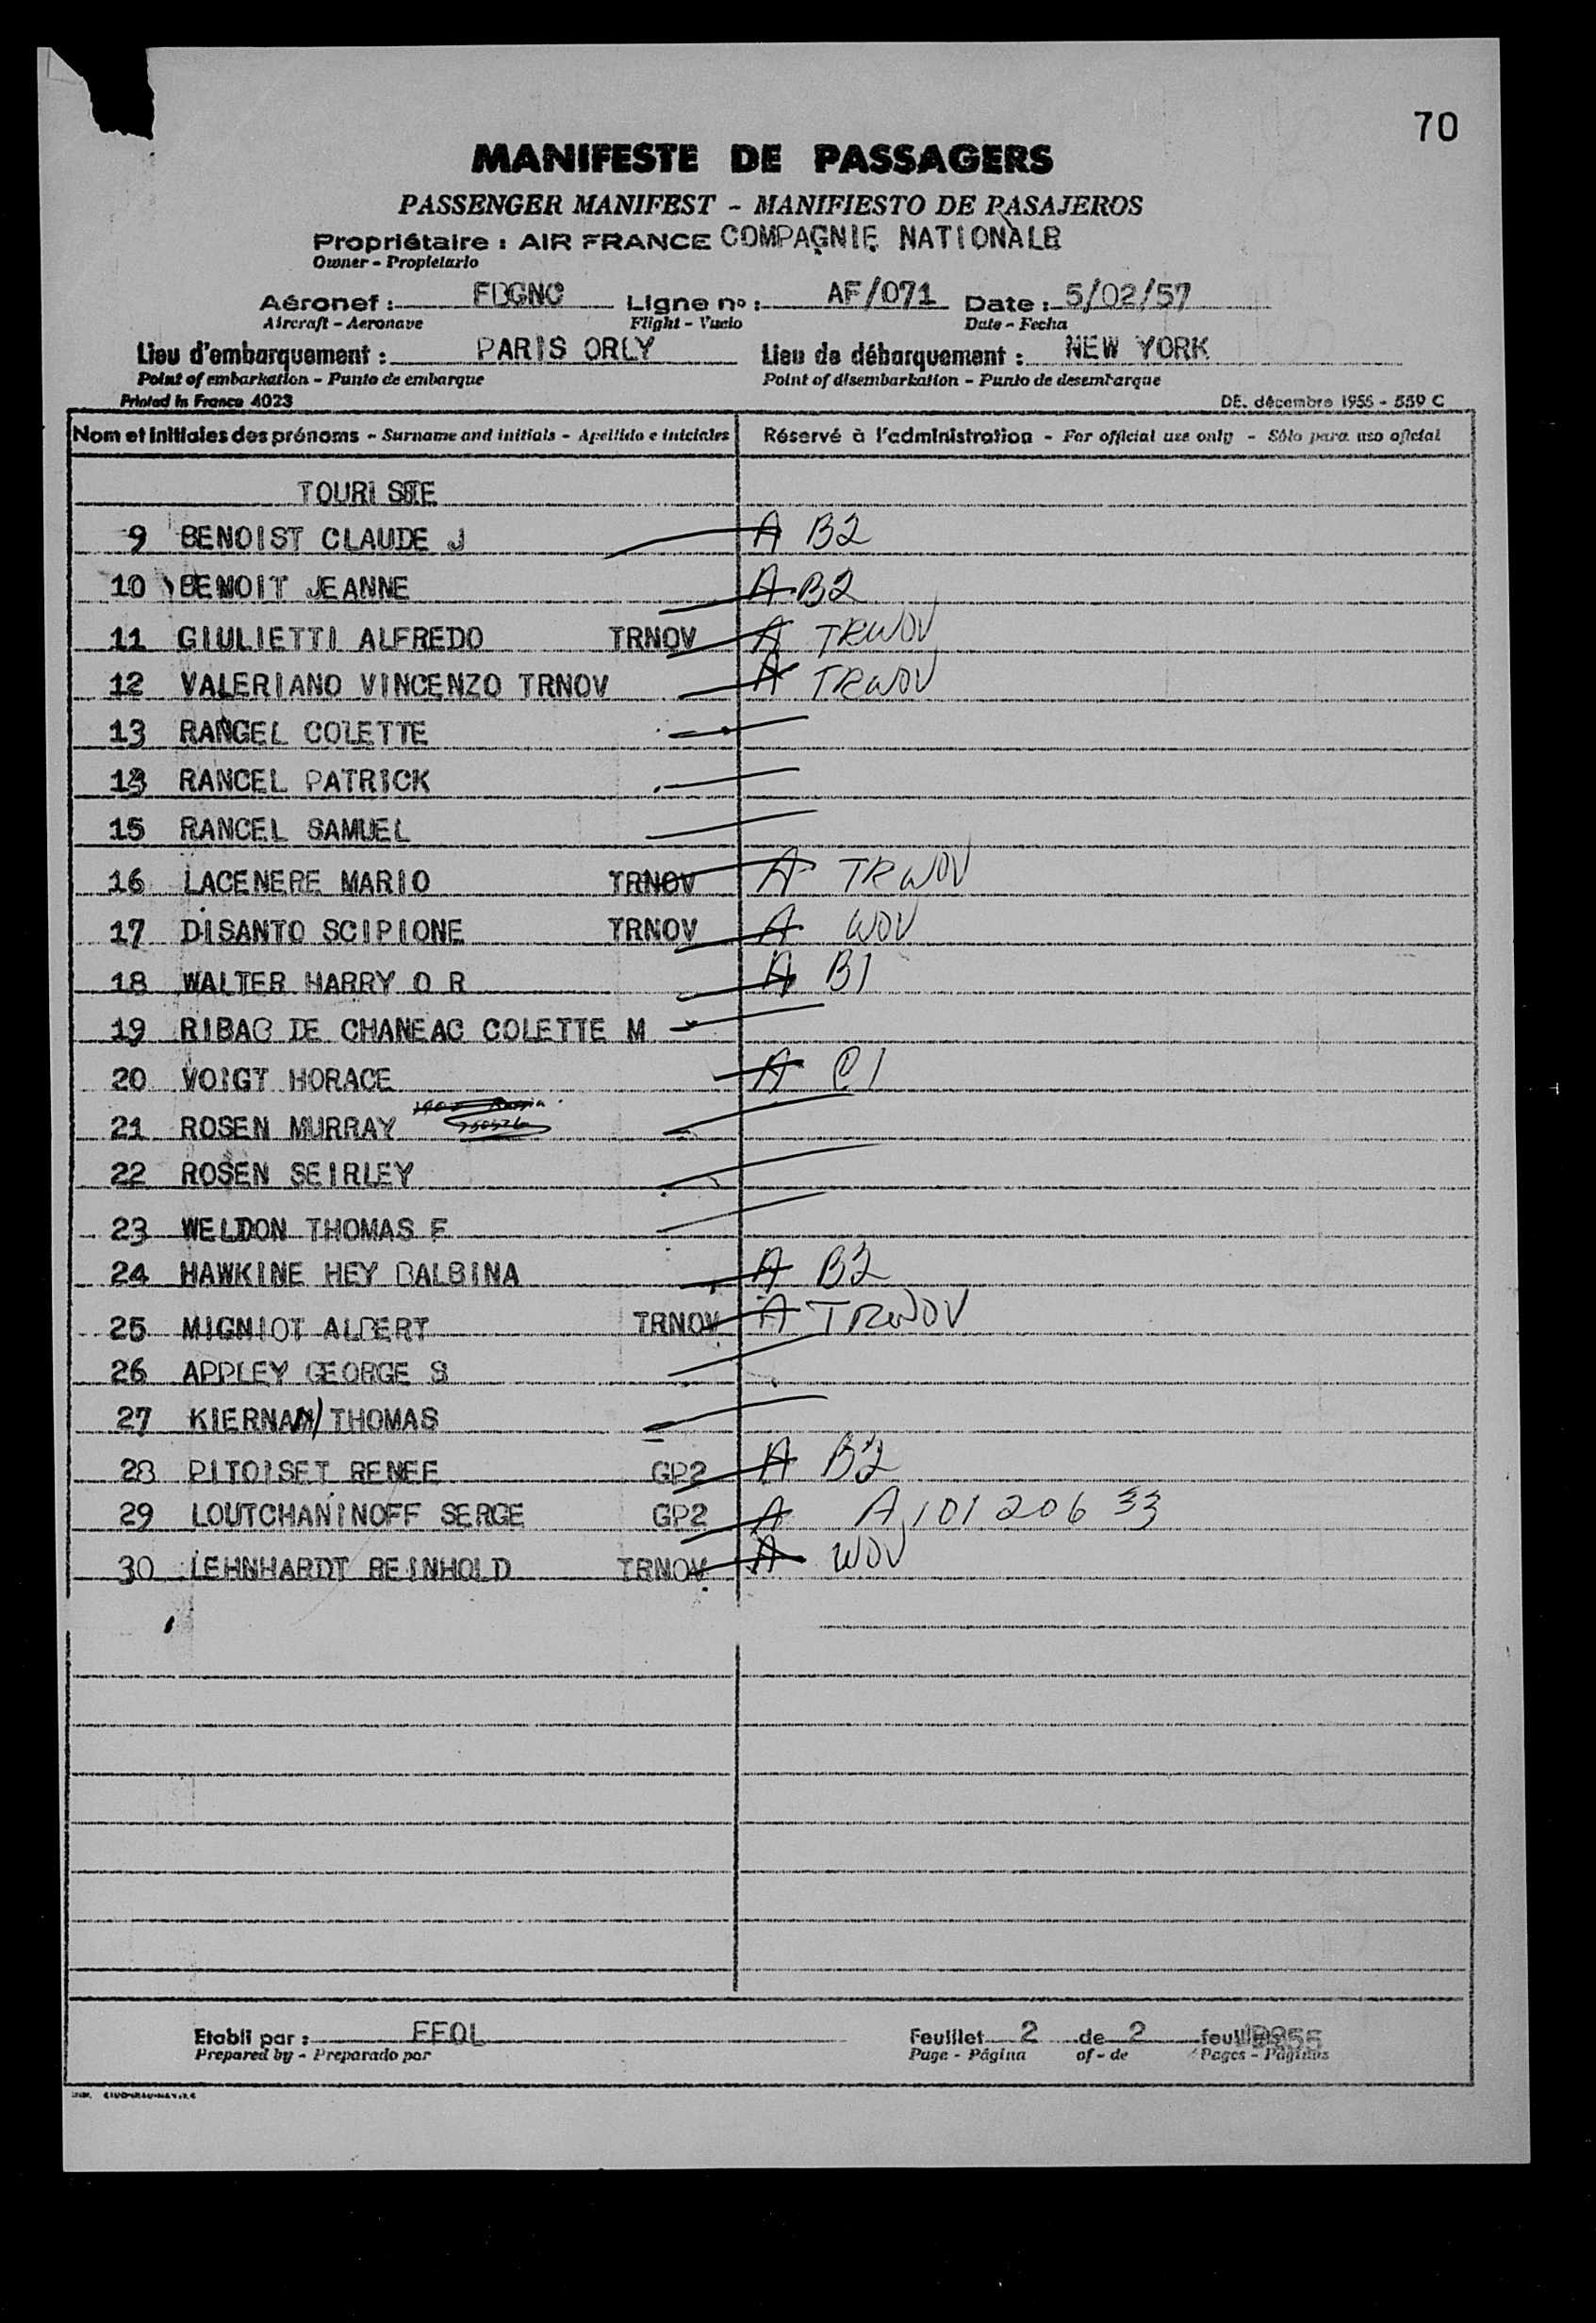 70
MANIFESTE DE PASSAGERS
PASSENGER MANIFEST - MANIFIESTO DE PASAJEROS
Propriétaire : AIR FRANCE COMPAGNIE NATIONALE
Owner - Propietario
Aéronef : FBGNC Ligne nº : AF/071 Date : 5/02/57
Aircraft - Aeronave Flight - Vuelo Date - Fecha
Lieu d'embarquement : PARIS ORLY Lieu de débarquement : NEW YORK
Point of embarkation - Punto de embarque Point of disembarkation - Punto de desembarque
Printed in France 4023 DE. décembre 1955 - 559 C
Nom et initiales des prénoms - Surname and initials - Apellido e iniciales Réservé à l'administration - For official use only - Sólo para uso oficial
TOURISTE
9 BENOIST CLAUDE J A B2
10 BENOIT JEANNE A B2
11 GIULIETTI ALFREDO TRNOV A TRWOV
12 VALERIANO VINCENZO TRNOV A TRWOV
13 RANGEL COLETTE
13 RANCEL PATRICK
15 RANCEL SAMUEL
16 LACENERE MARIO TRNOV A TRWOV
17 DISANTO SCIPIONE TRNOV A WOV
18 WALTER HARRY O R A B1
19 RIBAC DE CHANEAC COLETTE M
20 VOIGT HORACE A C1
21 ROSEN MURRAY
22 ROSEN SEIRLEY
23 WELDON THOMAS F
24 HAWKINE HEY BALBINA A B2
25 MIGNIOT ALBERT TRNOV A TRWOV
26 APPLEY GEORGE S
27 KIERNAN/THOMAS
28 PITOISET RENEE GP2 A B2
29 LOUTCHANINOFF SERGE GP2 A A10120633
30 LEHNHARDT REINHOLD TRNOV A WOV
Etabli par : FFOL Feuillet 2 de 2 feuillets
Prepared by - Preparado por Page - Página of - de Pages - Páginas